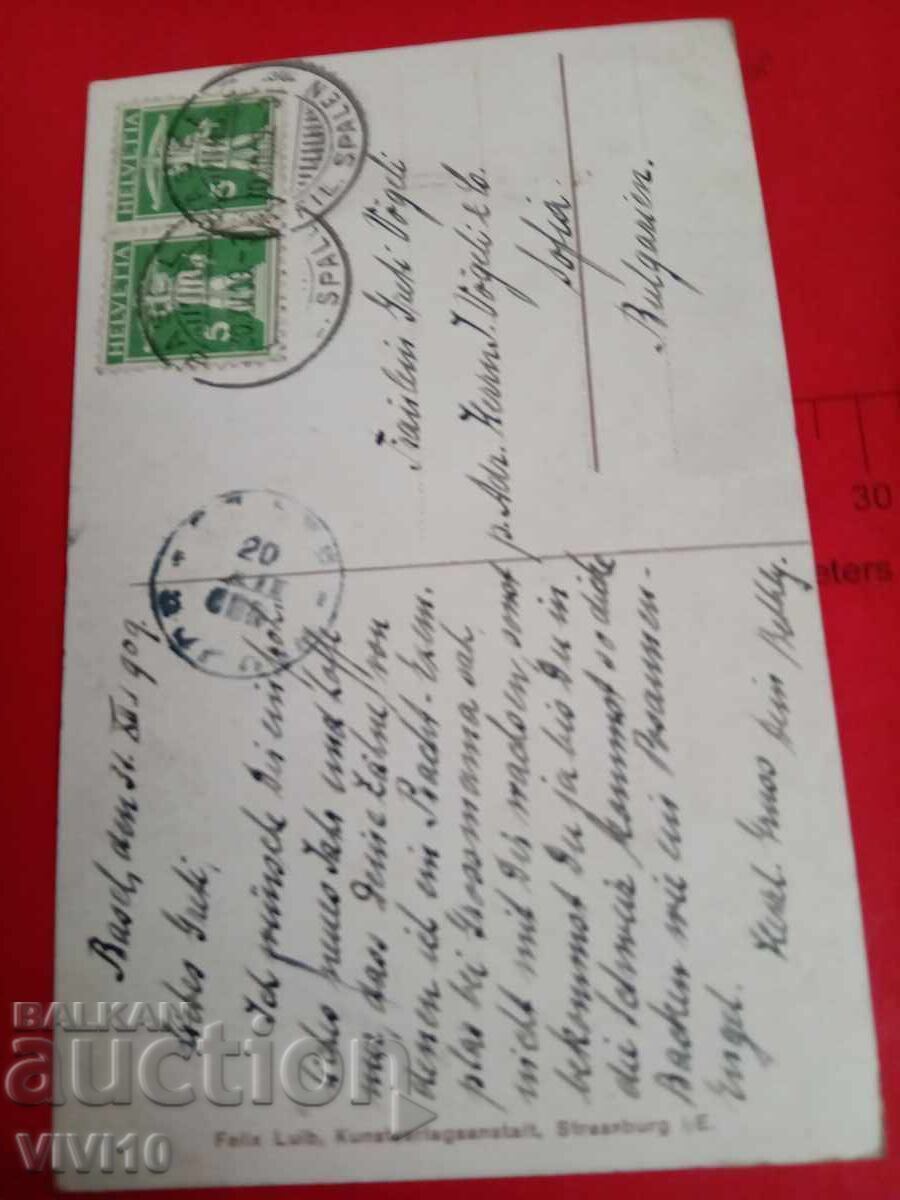 HELVETIA
5
HELVETIA
5
SPALEN
SPALEN
Basel, den 31. XII. 1909.
Liebes Gueti,
Ich wünsche Dir ein
neues Jahr und hoffe
nur, dass Deine Zähne von
denen ich ein
bei Grossmama sah,
nicht mit Dir machen, sonst
bekommst Du ja bis Du in
die Schweiz kommst so dicke
Backen wie ein Posaunen-
Engel.
Herzl. Gruss Dein
Fräulein Gueti Vögeli
p. Adr. Herrn J. Vögeli & Co.
Sofia
Bulgarien.
20
Felix Luib, Kunstverlagsanstalt, Strassburg i/E.
30
eters
BALKAN
auction
VIVI10